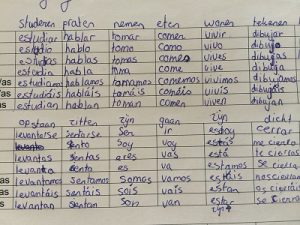 studeren praten nemen eten wonen tekenen
estudiar hablar tomar comer vivir dibujar
estudio hablo tomo como vivo dibujo
estudias hablas tomas comes vives dibujas
estudia habla toma come vive dibuja
/as estudiamos hablamos tomamos comemos vivimos dibujamos
/as estudiáis habláis tomáis coméis vivís
estudian hablan toman comen viven dibujan
opstaan zitten zijn gaan zijn dicht
levantarse sentarse ser ir estoy cerrar
levanto sento soy voy estás me cierro
levantas sentas eres vas está te cierras
levanta senta es va estamos se cierra
/as levantamos sentamos somos vamos estáis nos
/as levantáis sentáis sois vais están os
levantan sentan son van estar se cierran
zijn